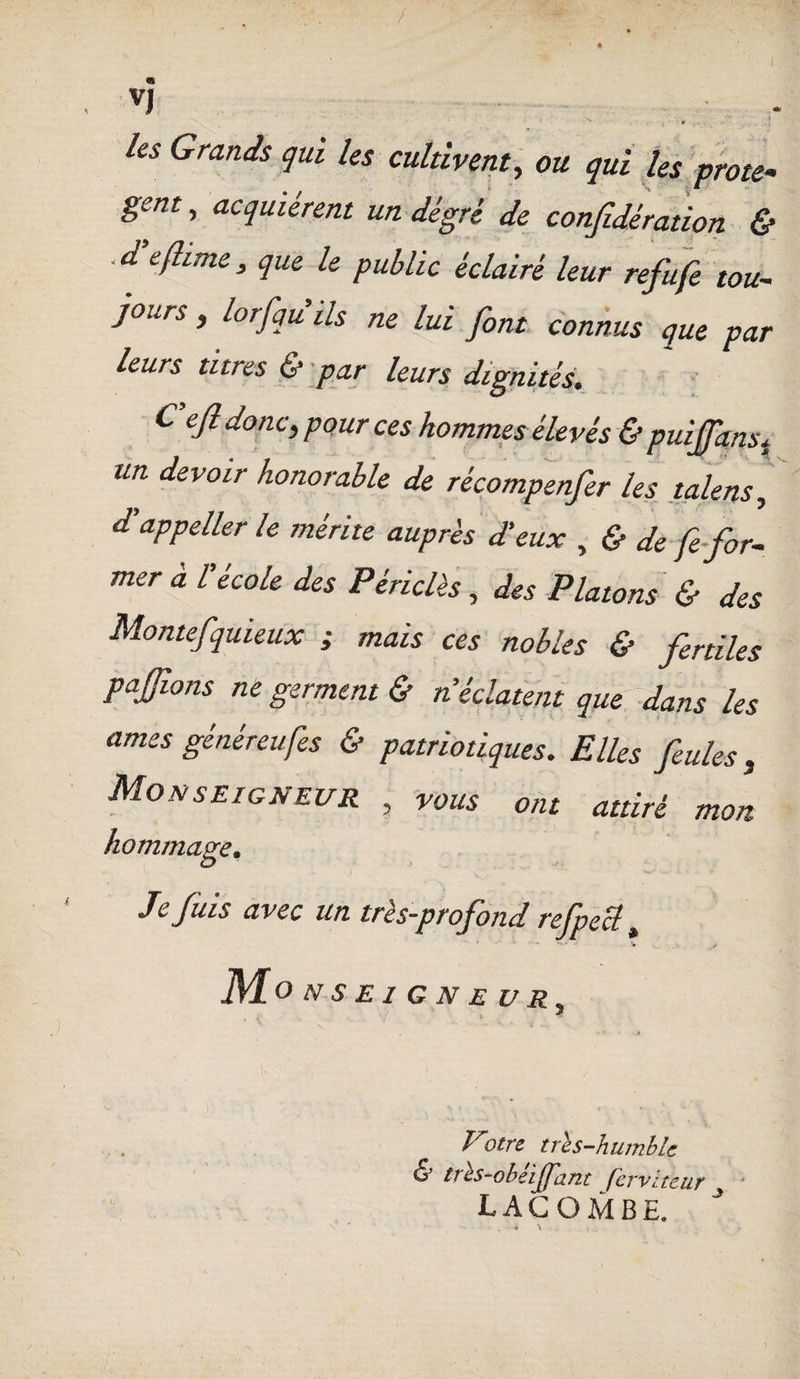 vj
les Grands qui les cultivent, ou qui les prote-
gent, acquiérent un dégré de conſidération &
d'eſtime, que le public éclairé leur refuſe tou-
jours, lorſqu'ils ne lui ſont connus que par
leurs titres & par leurs dignités.
C'eſt donc, pour ces hommes élevés & puiſſans,
un devoir honorable de récompenſer les talens,
d'appeller le mérite auprès d'eux, & de ſe for-
mer à l'école des Périclès, des Platons & des
Monteſquieux ; mais ces nobles & fertiles
paſſions ne germent & n'éclatent que dans les
ames généreuſes & patriotiques. Elles ſeules,
MONSEIGNEUR, vous ont attiré mon
hommage.
Je ſuis avec un très-profond reſpect,
MONSEIGNEUR,
Votre très-humble
& très-obéiſſant ſerviteur,
LACOMBE.